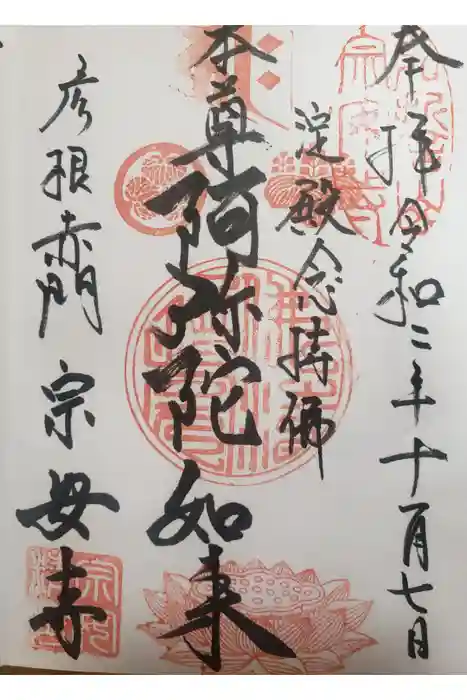 奉拝 令和二年十月七日
淀殿念持佛
本尊 阿弥陀如来
彦根赤門 宗安寺